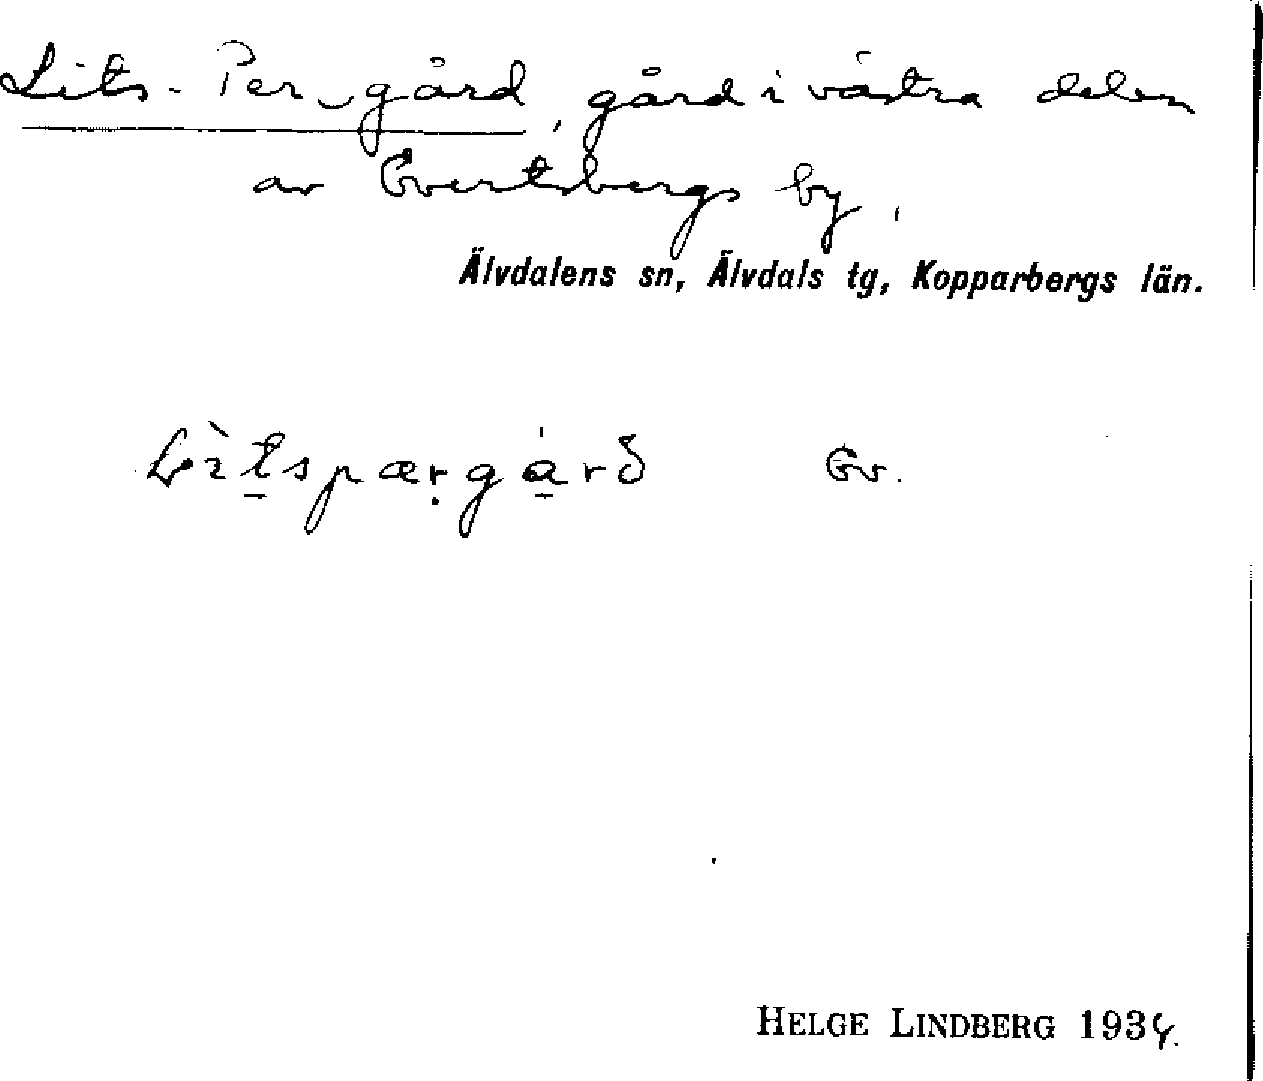 Lits-Per_gård, gård i västra delen
av Evertsbergs by.
Älvdalens sn, Älvdals tg, Kopparbergs län.
Lìt̲spæṛgá̲rð Ev.
HELGE LINDBERG 1934.